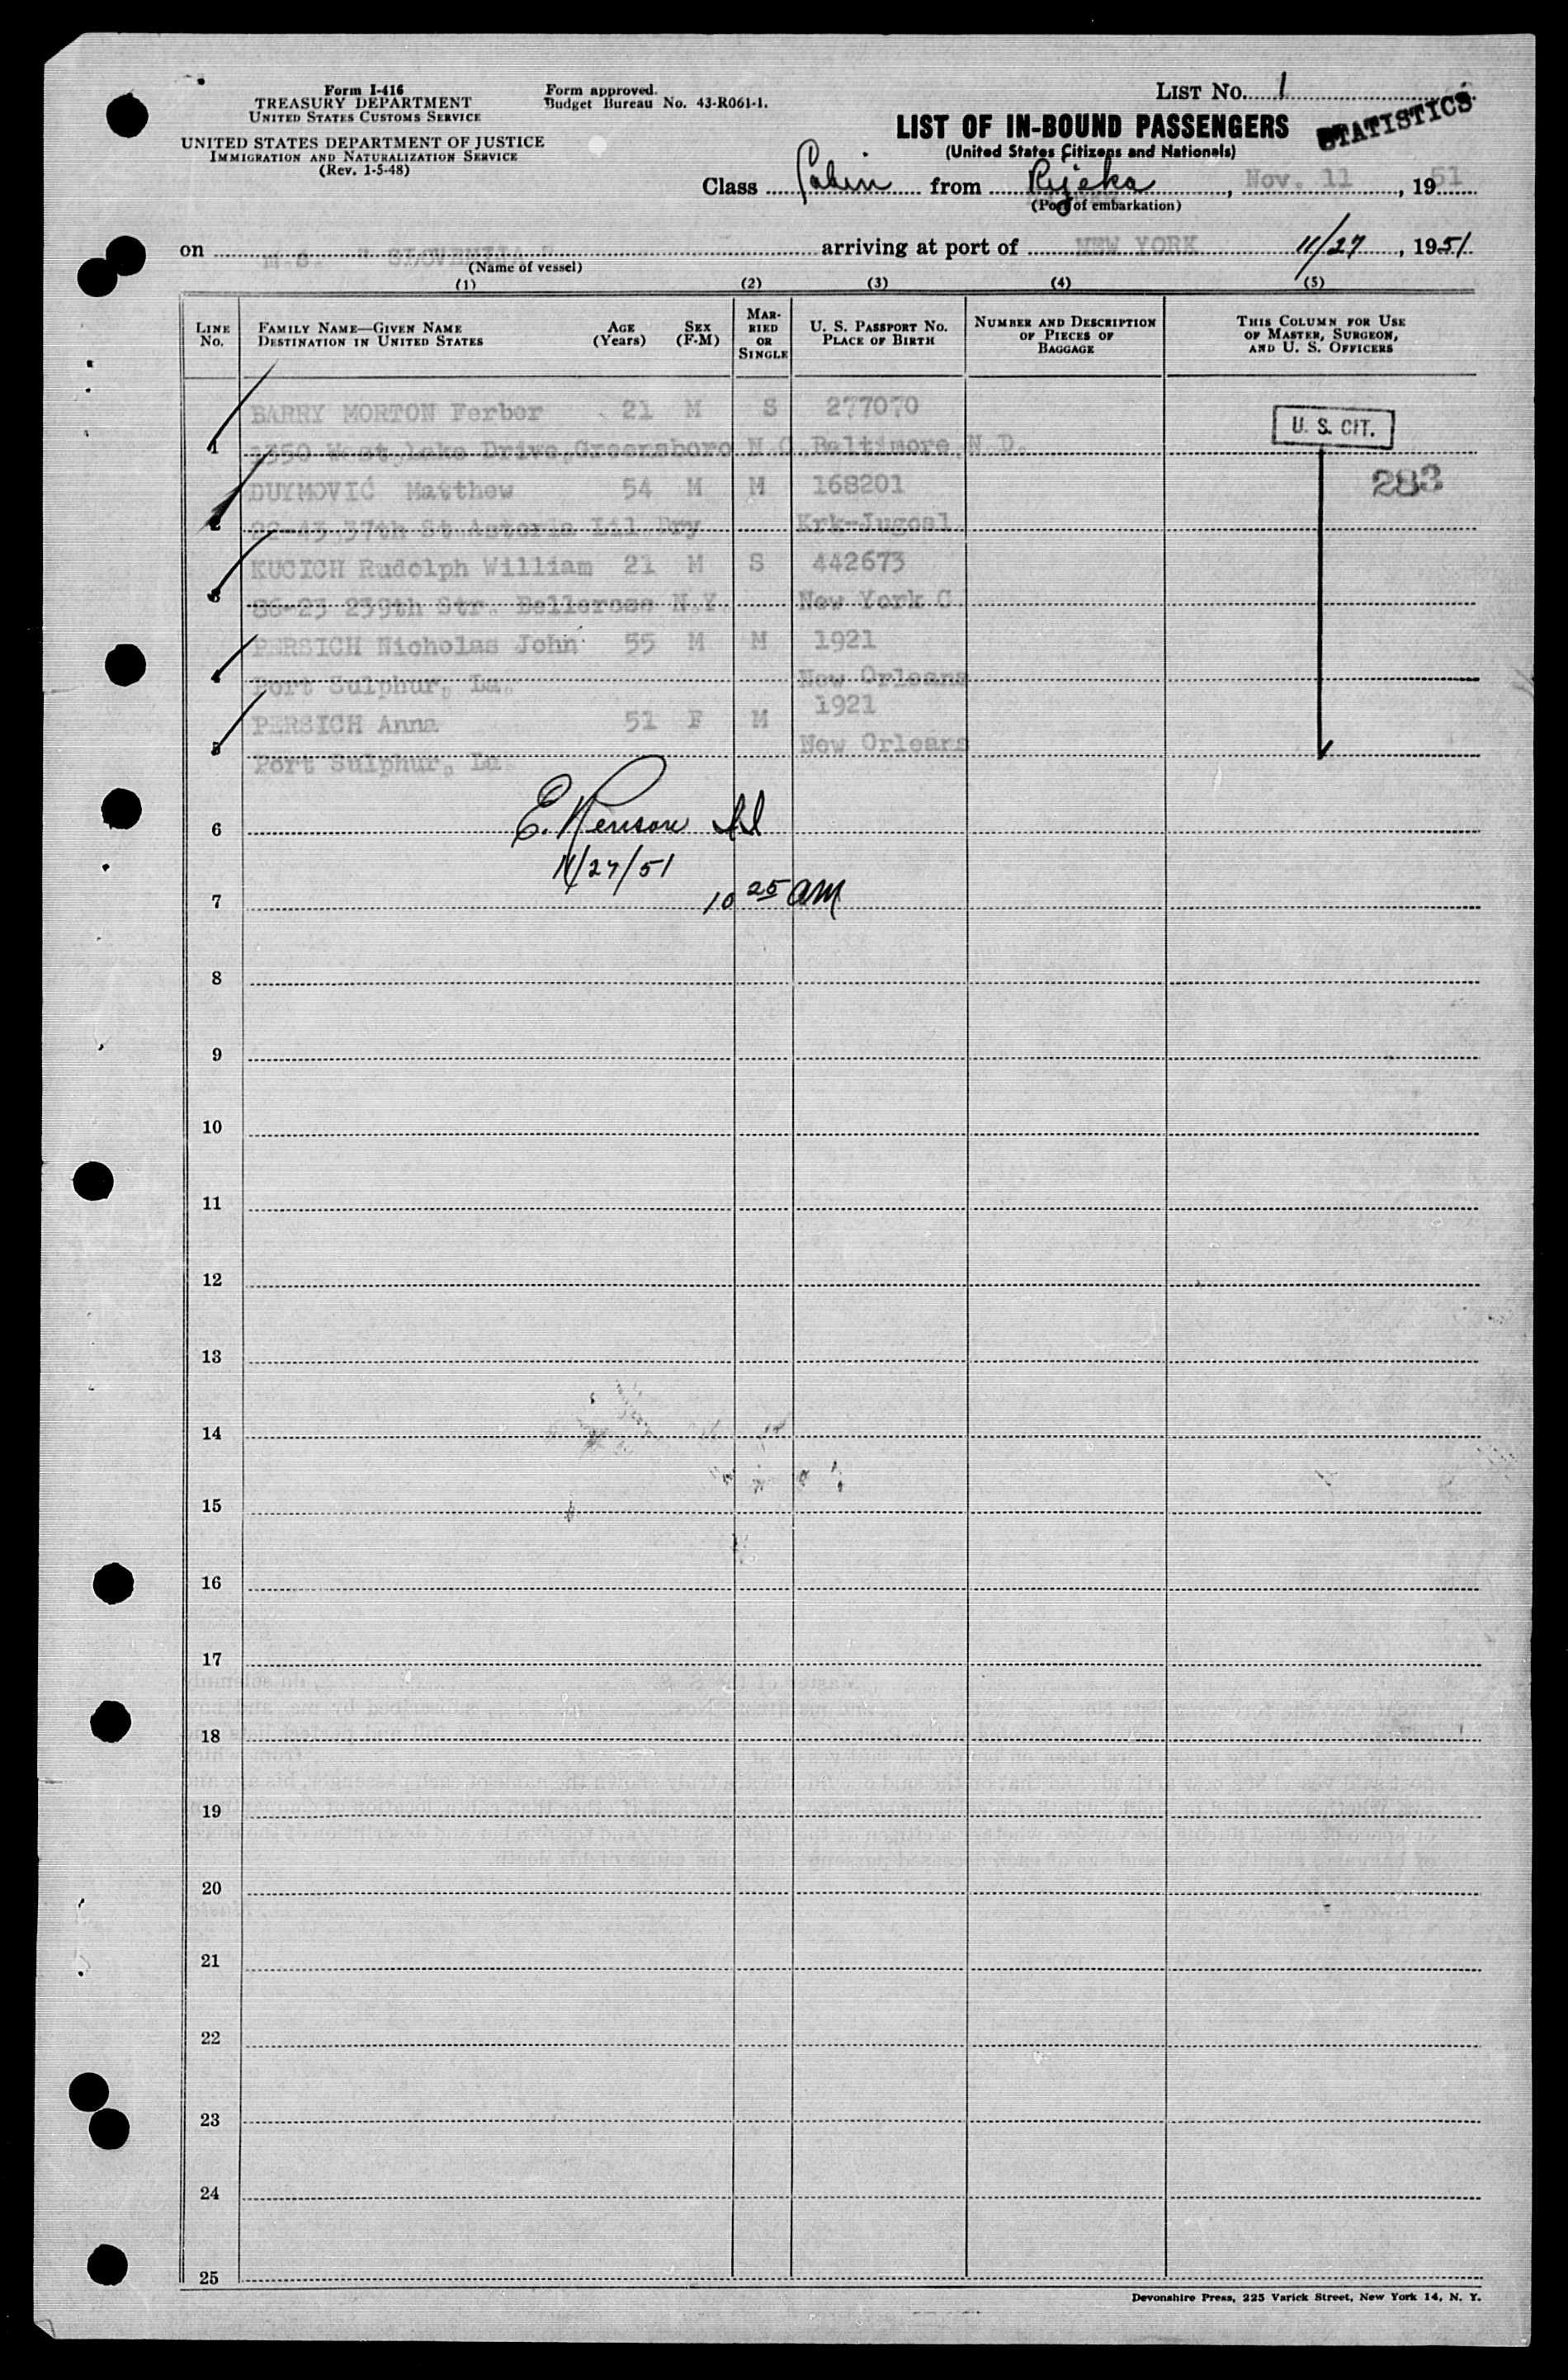 Form I-416
TREASURY DEPARTMENT
UNITED STATES CUSTOMS SERVICE
UNITED STATES DEPARTMENT OF JUSTICE
IMMIGRATION AND NATURALIZATION SERVICE
(Rev. 1-5-48)
Form approved.
Budget Bureau No. 43-R061-1.
LIST No. 1
STATISTICS
LIST OF IN-BOUND PASSENGERS
(United States Citizens and Nationals)
Class Cabin from Rijeka, Nov. 11, 1951
(Port of embarkation)
on M.S. "SLOVENIJA" arriving at port of NEW YORK 11/27, 1951
(Name of vessel)
(1) (2) (3) (4) (5)
LINE No. FAMILY NAME—GIVEN NAME DESTINATION IN UNITED STATES AGE (Years) SEX (F-M) MARRIED OR SINGLE U. S. PASSPORT No. PLACE OF BIRTH NUMBER AND DESCRIPTION OF PIECES OF BAGGAGE THIS COLUMN FOR USE OF MASTER, SURGEON, AND U. S. OFFICERS
BARRY MORTON Ferber 21 M S 277070
1 3350 West lake Drive, Greensboro N.C. Baltimore, N.D.
U. S. CIT.
DUYMOVIĆ Matthew 54 M M 168201
283
2 22-43 37th St Astoria Krk-Jugosl
KUCICH Rudolph William 21 M S 442673
3 86-23 239th Str. Bellerose N.Y. New York C.
PERSICH Nicholas John 55 M M 1921
4 Port Sulphur, La. New Orleans
PERSICH Anna 51 F M 1921
5 Port Sulphur, La New Orleans
6 E.
11/27/51
7 10 25 AM
8
9
10
11
12
13
14
15
16
17
18
19
20
21
22
23
24
25
Devonshire Press, 225 Varick Street, New York 14, N. Y.